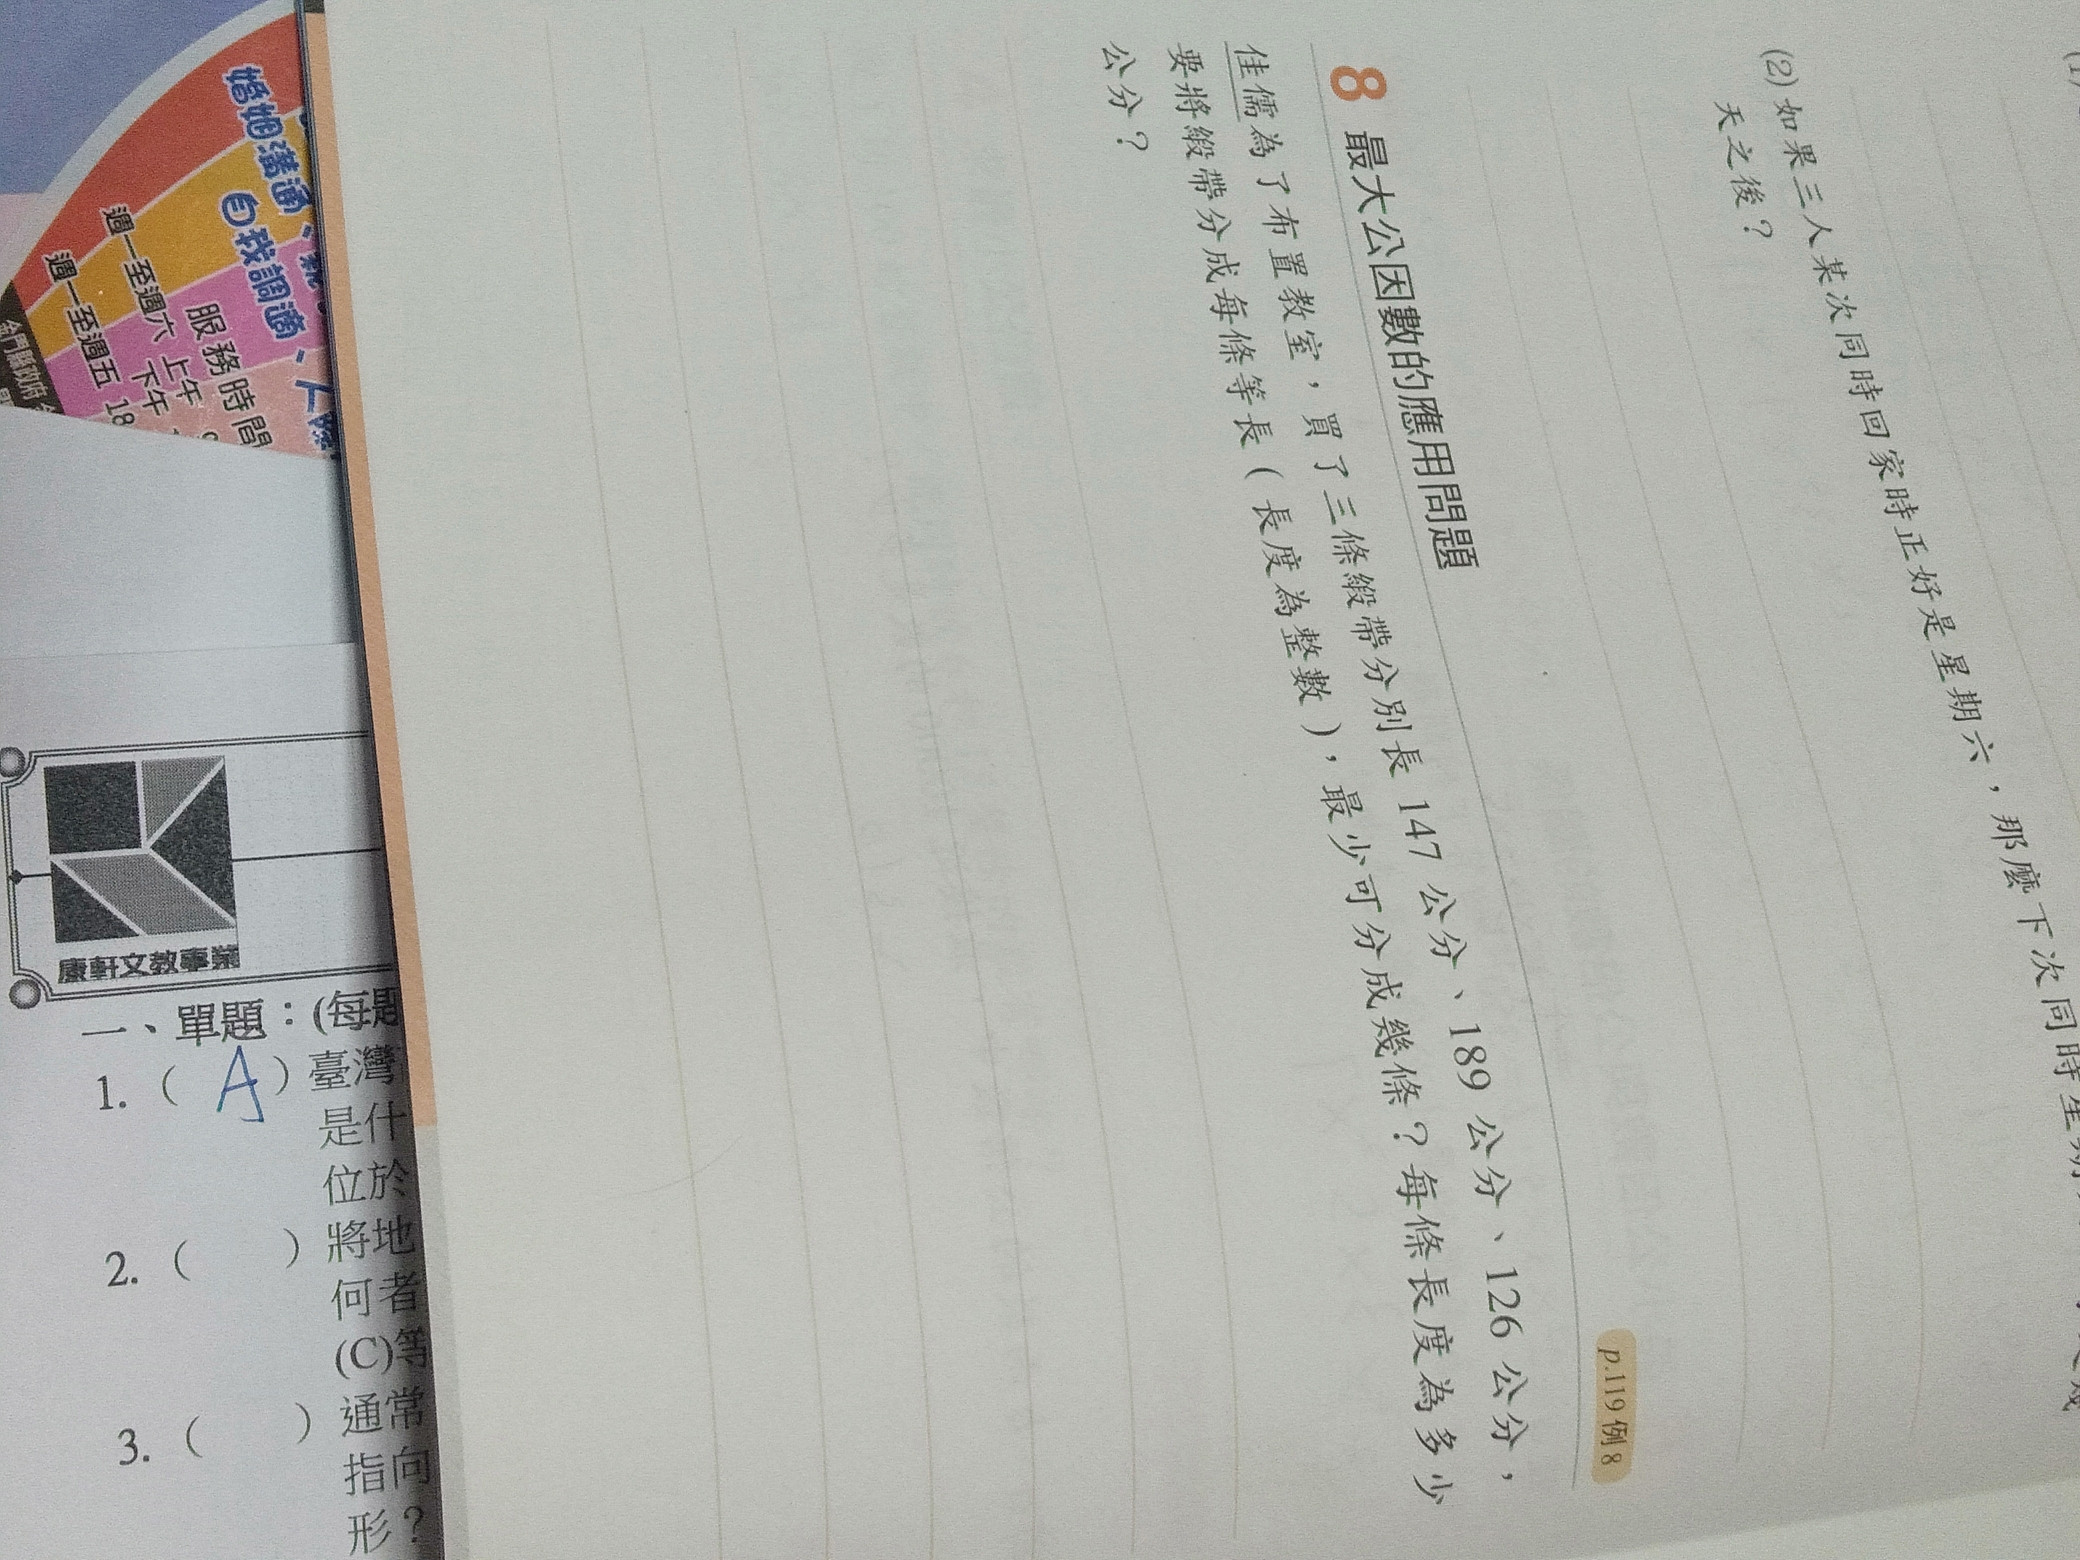 (2)如果三人某次同時回家時正好是星期六，那麼下次同時
天之後？
8 最大公因數的應用問題
p.119例8
佳儒為了布置教室，買了三條緞帶分別長 147 公分、189 公分、126 公分，
要將緞帶分成每條等長（長度為整數），最少可分成幾條？每條長度為多少
公分？
婚姻溝通、
自我調適、人際
服務時間
週一至週六 上午
下午
週一至週五 18
金門縣政府
康軒文教事業
一、單題：(每題
1.（ A ）臺灣
是什
位於
2.（ ）將地
何者
(C)等
3.（ ）通常
指向
形？